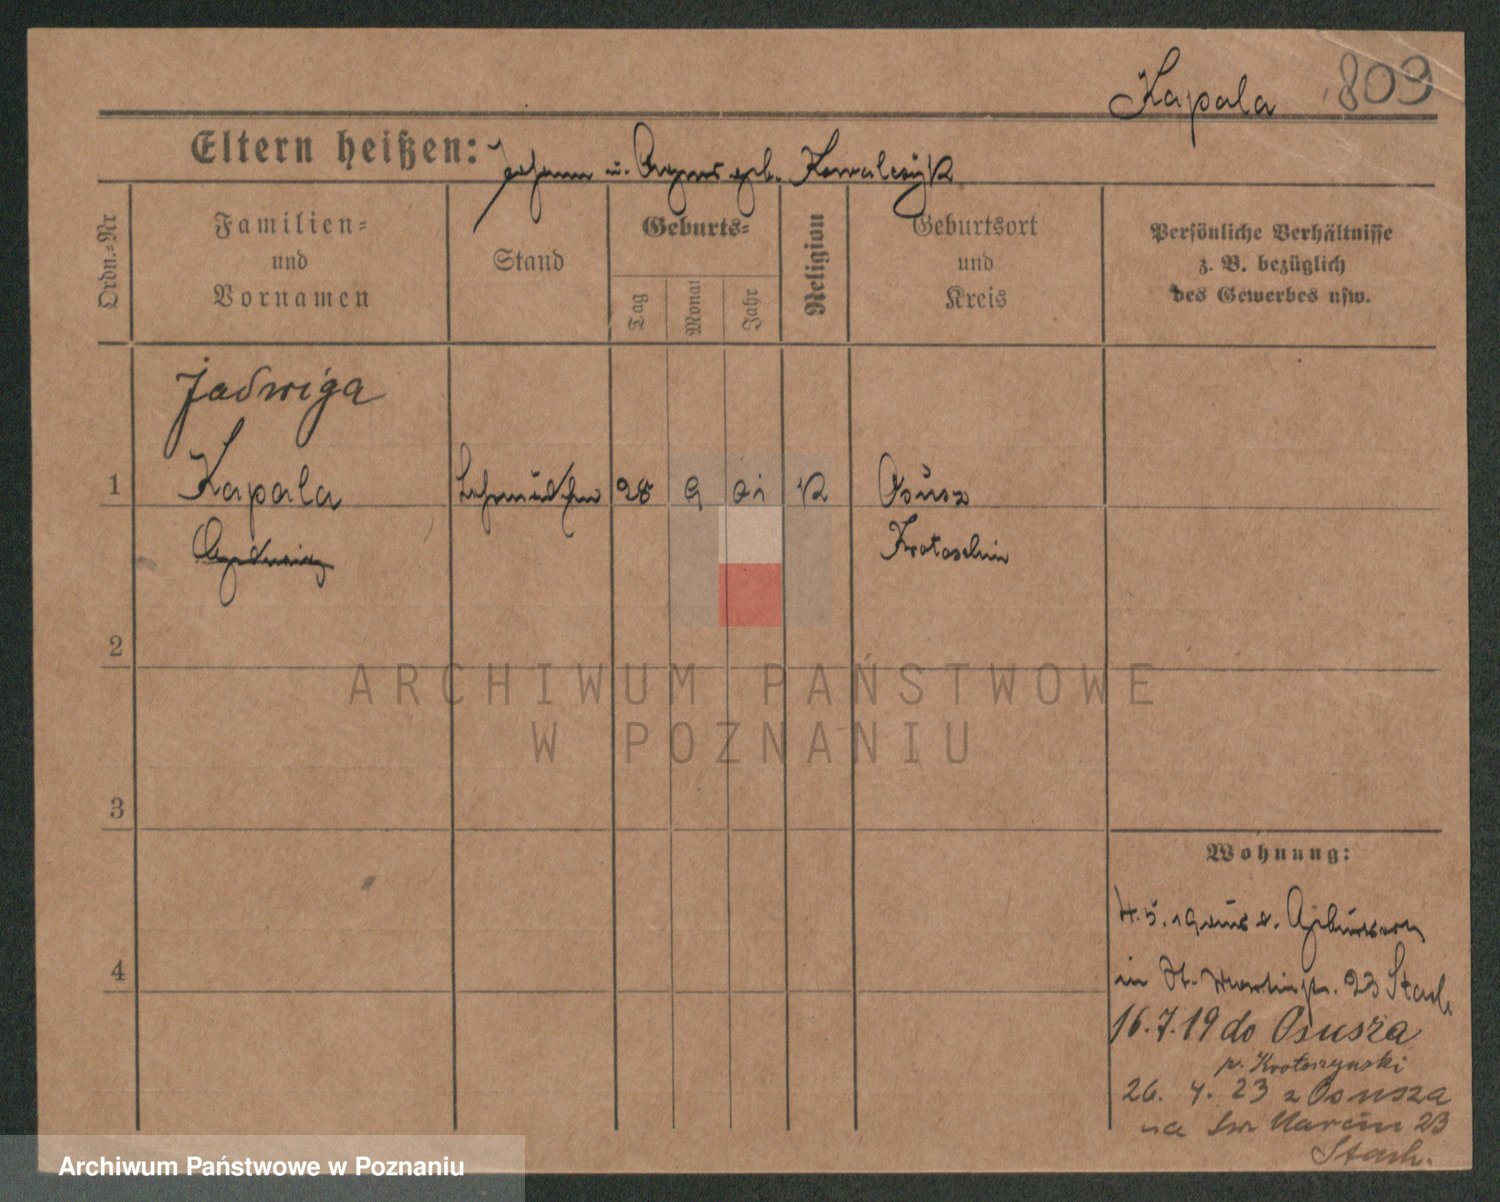 Kapala 809
Eltern heißen: Johann u. Agnes geb. Kowalczyk
Ordn.-Nr
Familien-
und
Vornamen
Stand
Geburts-
Tag
Monat
Jahr
Religion
Geburtsort
und
Kreis
Persönliche Verhältnisse
z. B. bezüglich
des Gewerbes usw.
Jadwiga
1 Kapala 28 9 01 K Osusz
Krotoschin
2
3
4
Wohnung:
in St. Martinstr. 23 Stach
16.7.19 do Osusza
p. Krotoszynski
26. 4. 23 z Osusza
na Św Marcin 23
Stach.
ARCHIWUM PAŃSTWOWE
W POZNANIU
Archiwum Państwowe w Poznaniu